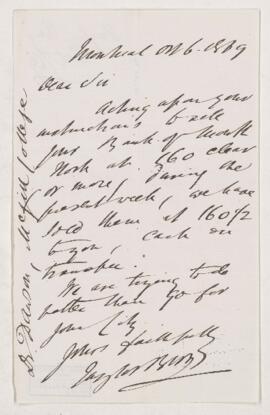 Montreal Oct 6 - 1869
Dear Sir
Acting upon your
instructions to sell
your Bank of Montl
Stock at 160 clear
or more, during the
present week, we have
sold them at 160 1/2
to you, cash on
transfer.
We are trying to do
better than 90 for
your City
Yours faithfully
Taylor Bros
Dr Dawson, McGill College